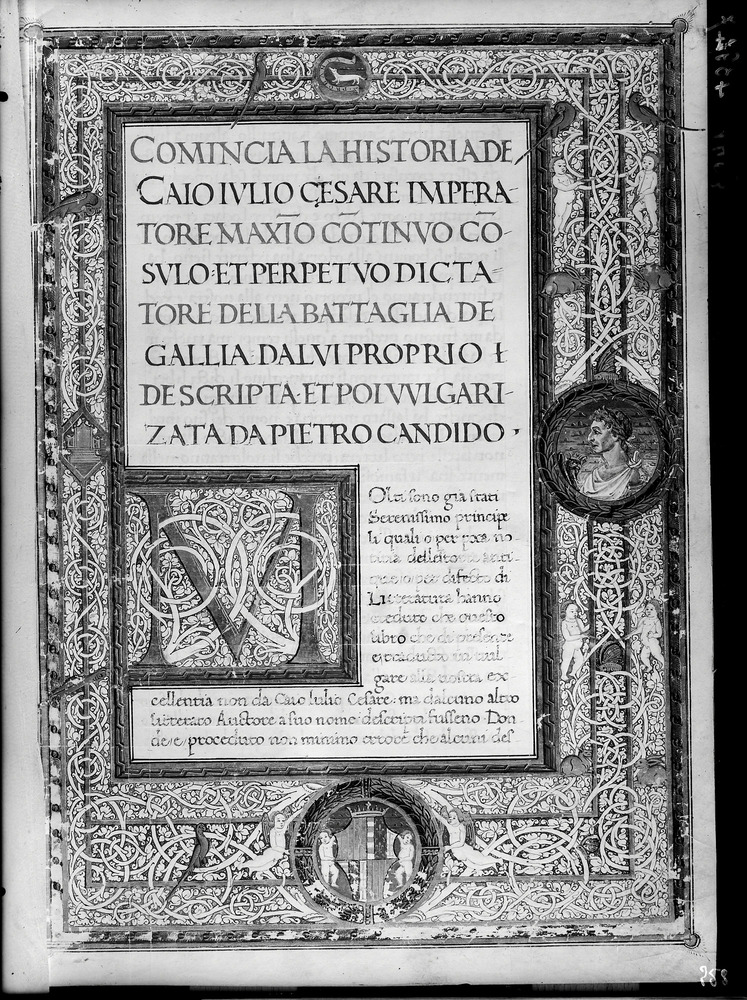 COMINCIA LA HISTORIA DE
CAIO IVLIO CESARE IMPERA-
TORE MAXĪO CŌTINVO CŌ-
SVLO: ET PERPETVO DICTA=
TORE DELLA BATTAGLIA DE
GALLIA: DA LVI PROPRIO
DESCRIPTA: ET POI VVLGARI-
ZATA DA PIETRO CANDIDO
M
Olti sono gia stati
Serenissimo principe
li quali o per poca no-
titia
difecto di
Litteratura hanno
creduto che questo
libro che di presente
vul
gare alla vostra ex-
cellentia non da Caio Iulio Cesare: ma da alcuno altro
litterato Auctore a suo nome descripti fusseno Don
de e proceduto non minimo errore che alcuni del
588